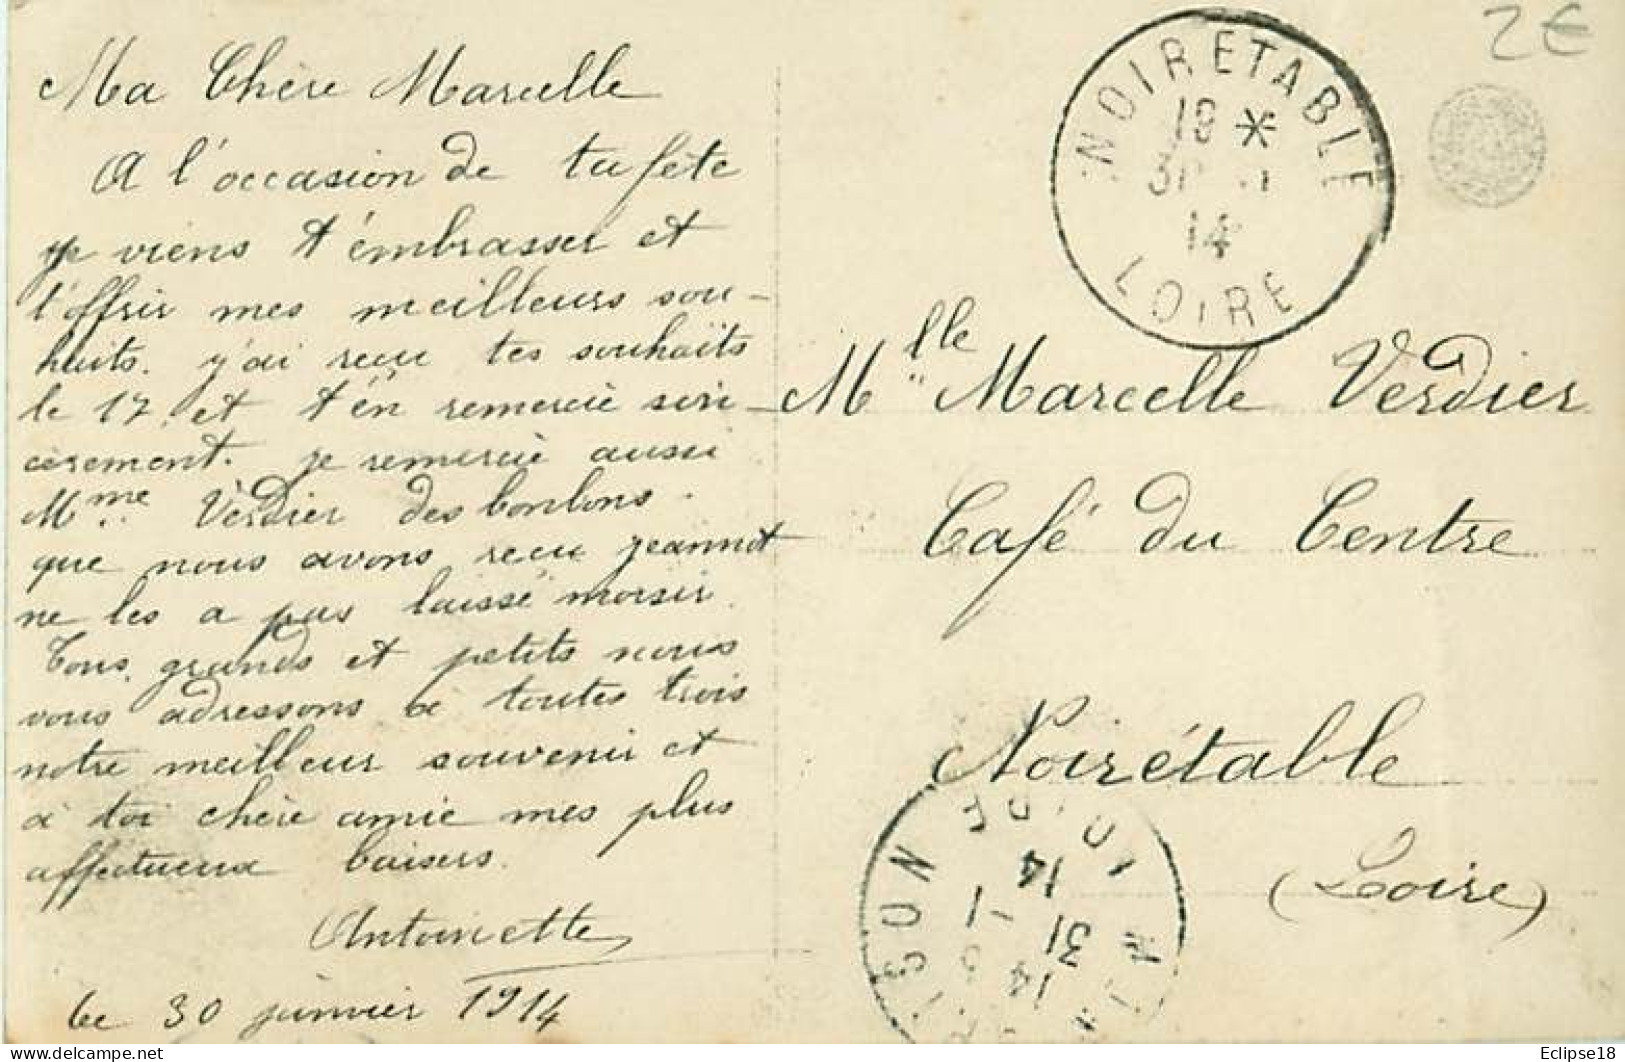 Ma Chère Marcelle
A l'occasion de ta fête
je viens t'embrasser et
t'offrir mes meilleurs sou-
haits. j'ai recu tes souhaits
le 17, et t'en remercie sin-
cèrement. je remercie aussi
Mme Verdier des bonbons.
que nous avons recu jeannot
ne les a pas laissé moisir.
Tous, grands et petits nous
vous adressons à toutes trois
notre meilleur souvenir et
à toi chère amie mes plus
affectueux baisers.
Antoinette
le 30 janvier 1914
2€
NOIRETABLE
18 *
14
LOIRE
Mlle Marcelle Verdier
Café du Centre
Noirétable
(Loire)
14
31 -1
14
Delcampe.net
Eclipse18